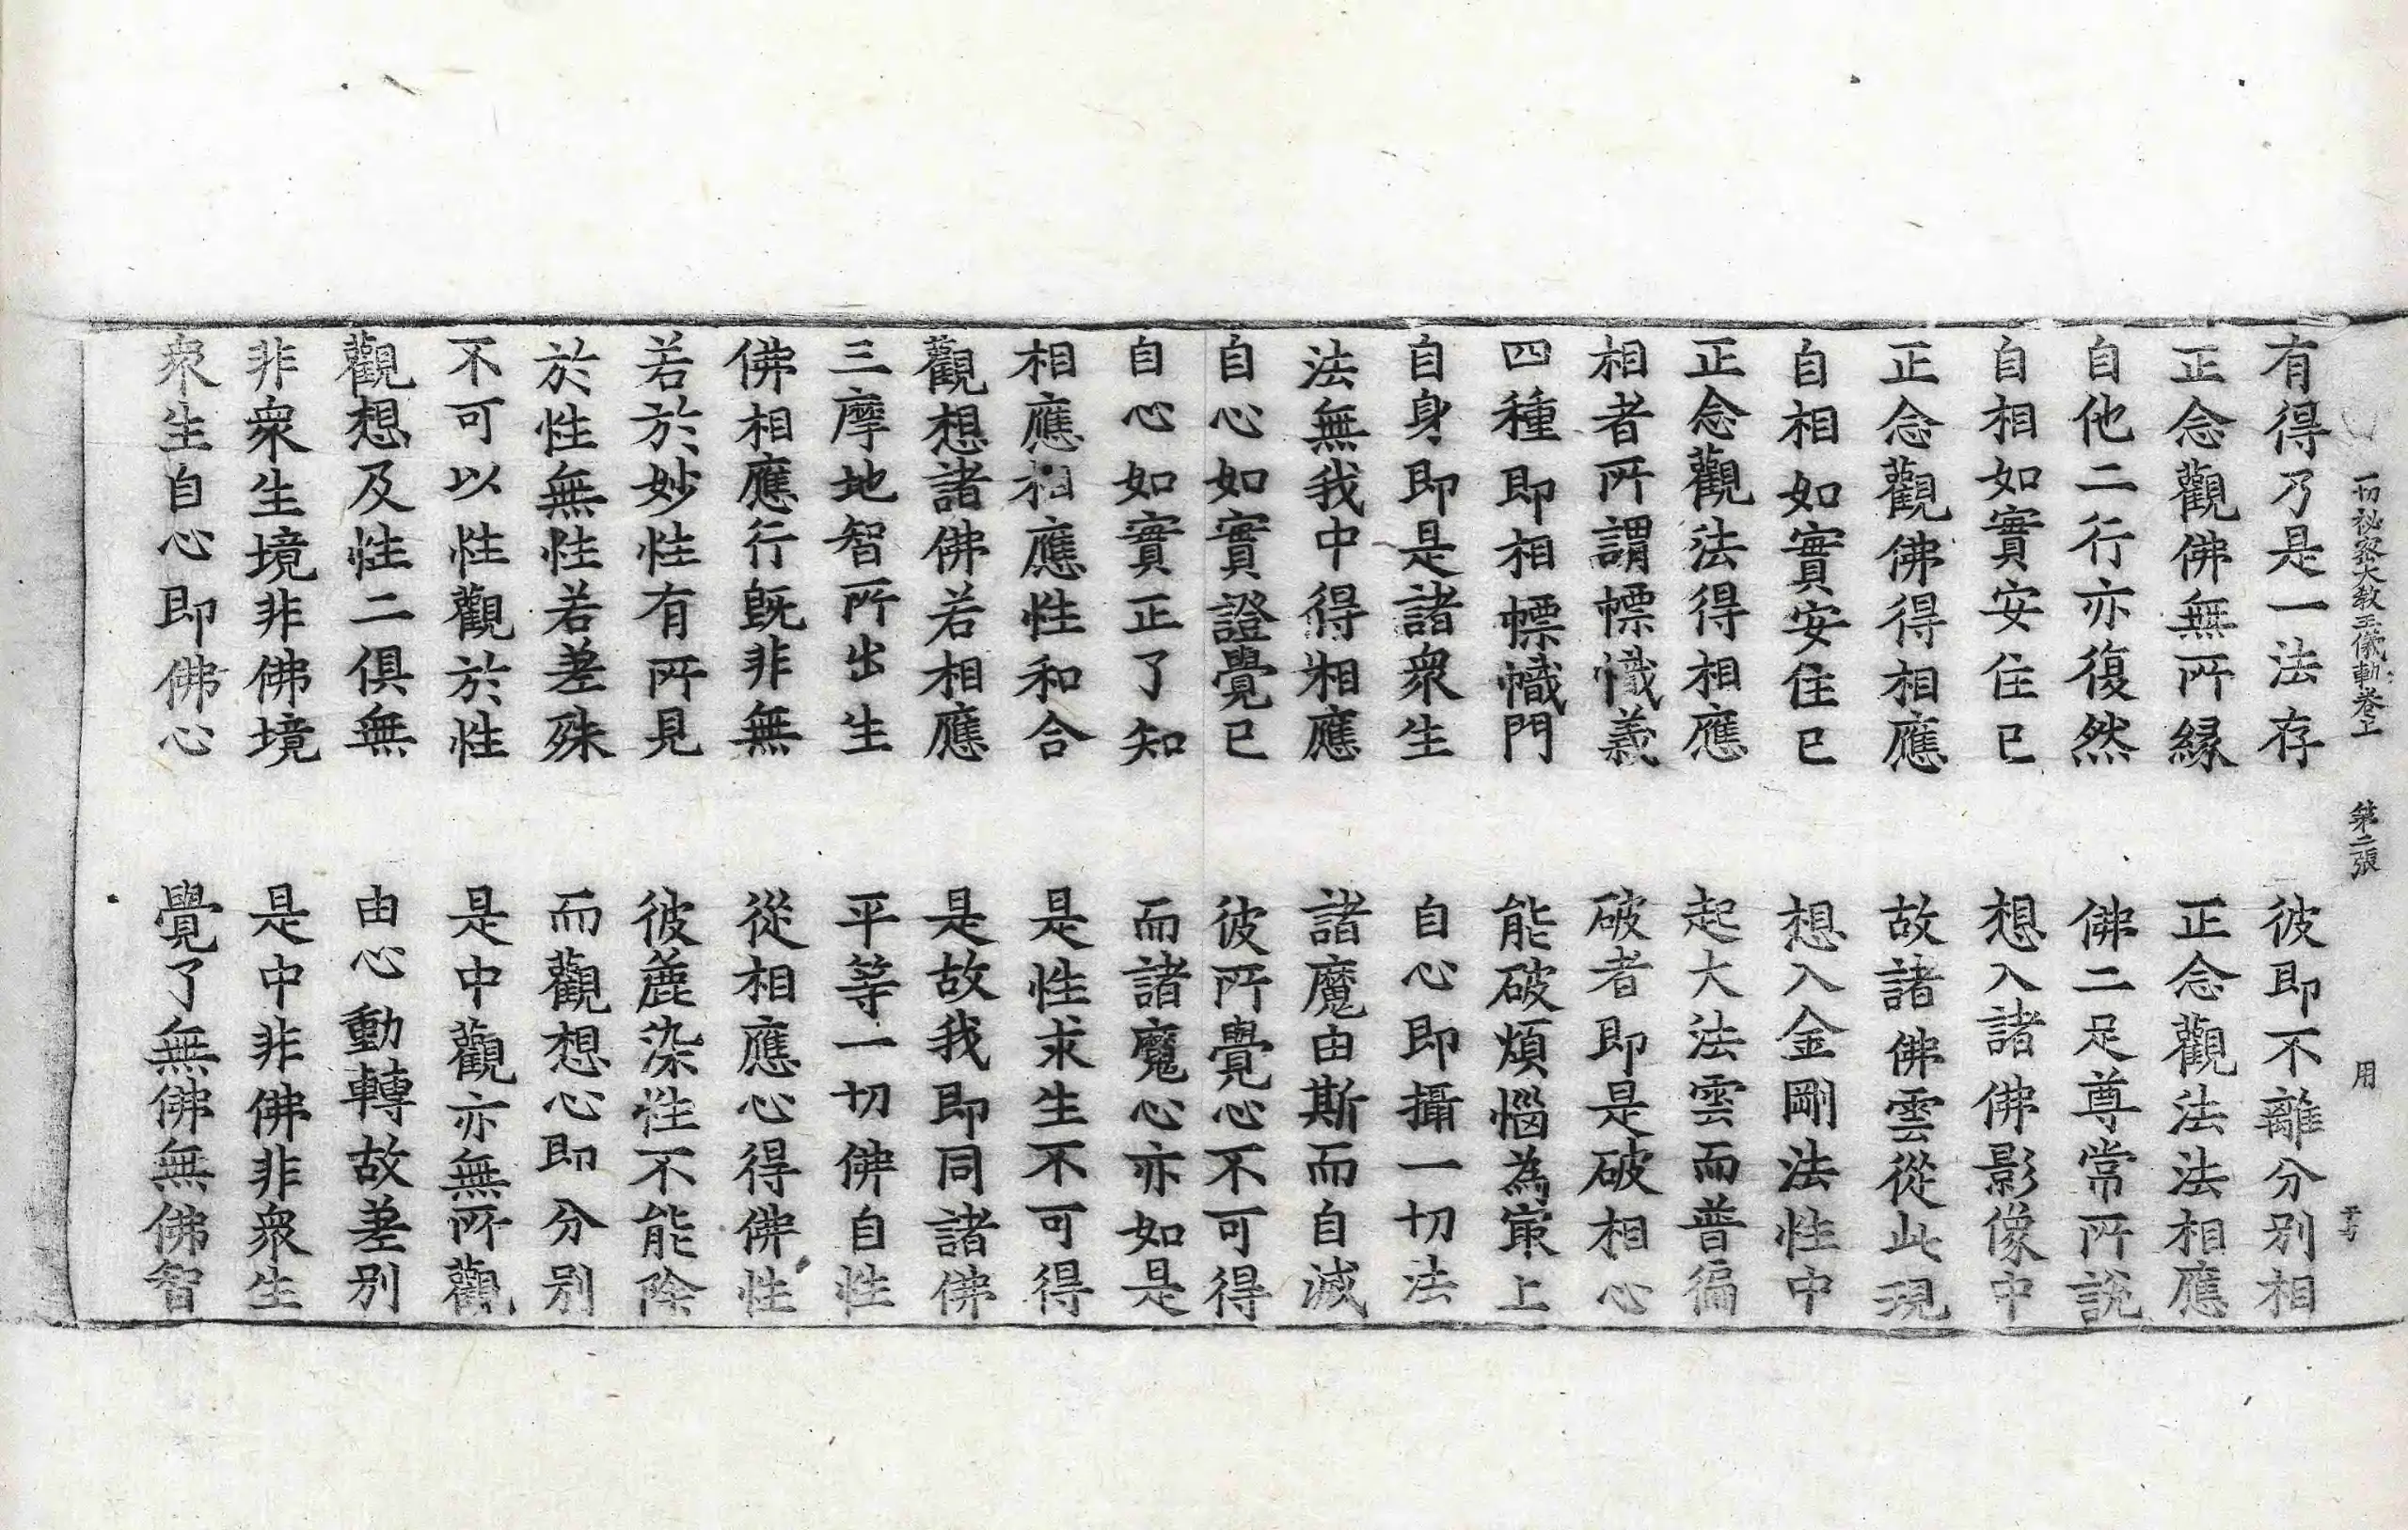 一切祕密大教王儀軌卷上 第二張 用
有得乃是一法存 彼即不離分别相
正念觀佛無所緣 正念觀法法相應
自他二行亦復然 佛二足尊常所說
自相如實安住已 想入諸佛影像中
正念觀佛得相應 故諸佛雲從此現
自相如實安住已 想入金剛法性中
正念觀法得相應 起大法雲而普徧
相者所謂幖幟義 破者即是破相心
四種即相幖幟門 能破煩惱為冣上
自身即是諸衆生 自心即攝一切法
法無我中得相應 諸魔由斯而自滅
自心如實證覺已 彼所覺心不可得
自心如實正了知 而諸魔心亦如是
相應相應性和合 是性求生不可得
觀想諸佛若相應 是故我即同諸佛
三摩地智所出生 平等一切佛自性
佛相應行旣非無 從相應心得佛性
若於妙性有所見 彼麁染性不能除
於性無性若差殊 而觀想心即分别
不可以性觀於性 是中觀亦無所觀
觀想及性二俱無 由心動轉故差别
非衆生境非佛境 是中非佛非衆生
衆生自心即佛心 覺了無佛無佛智